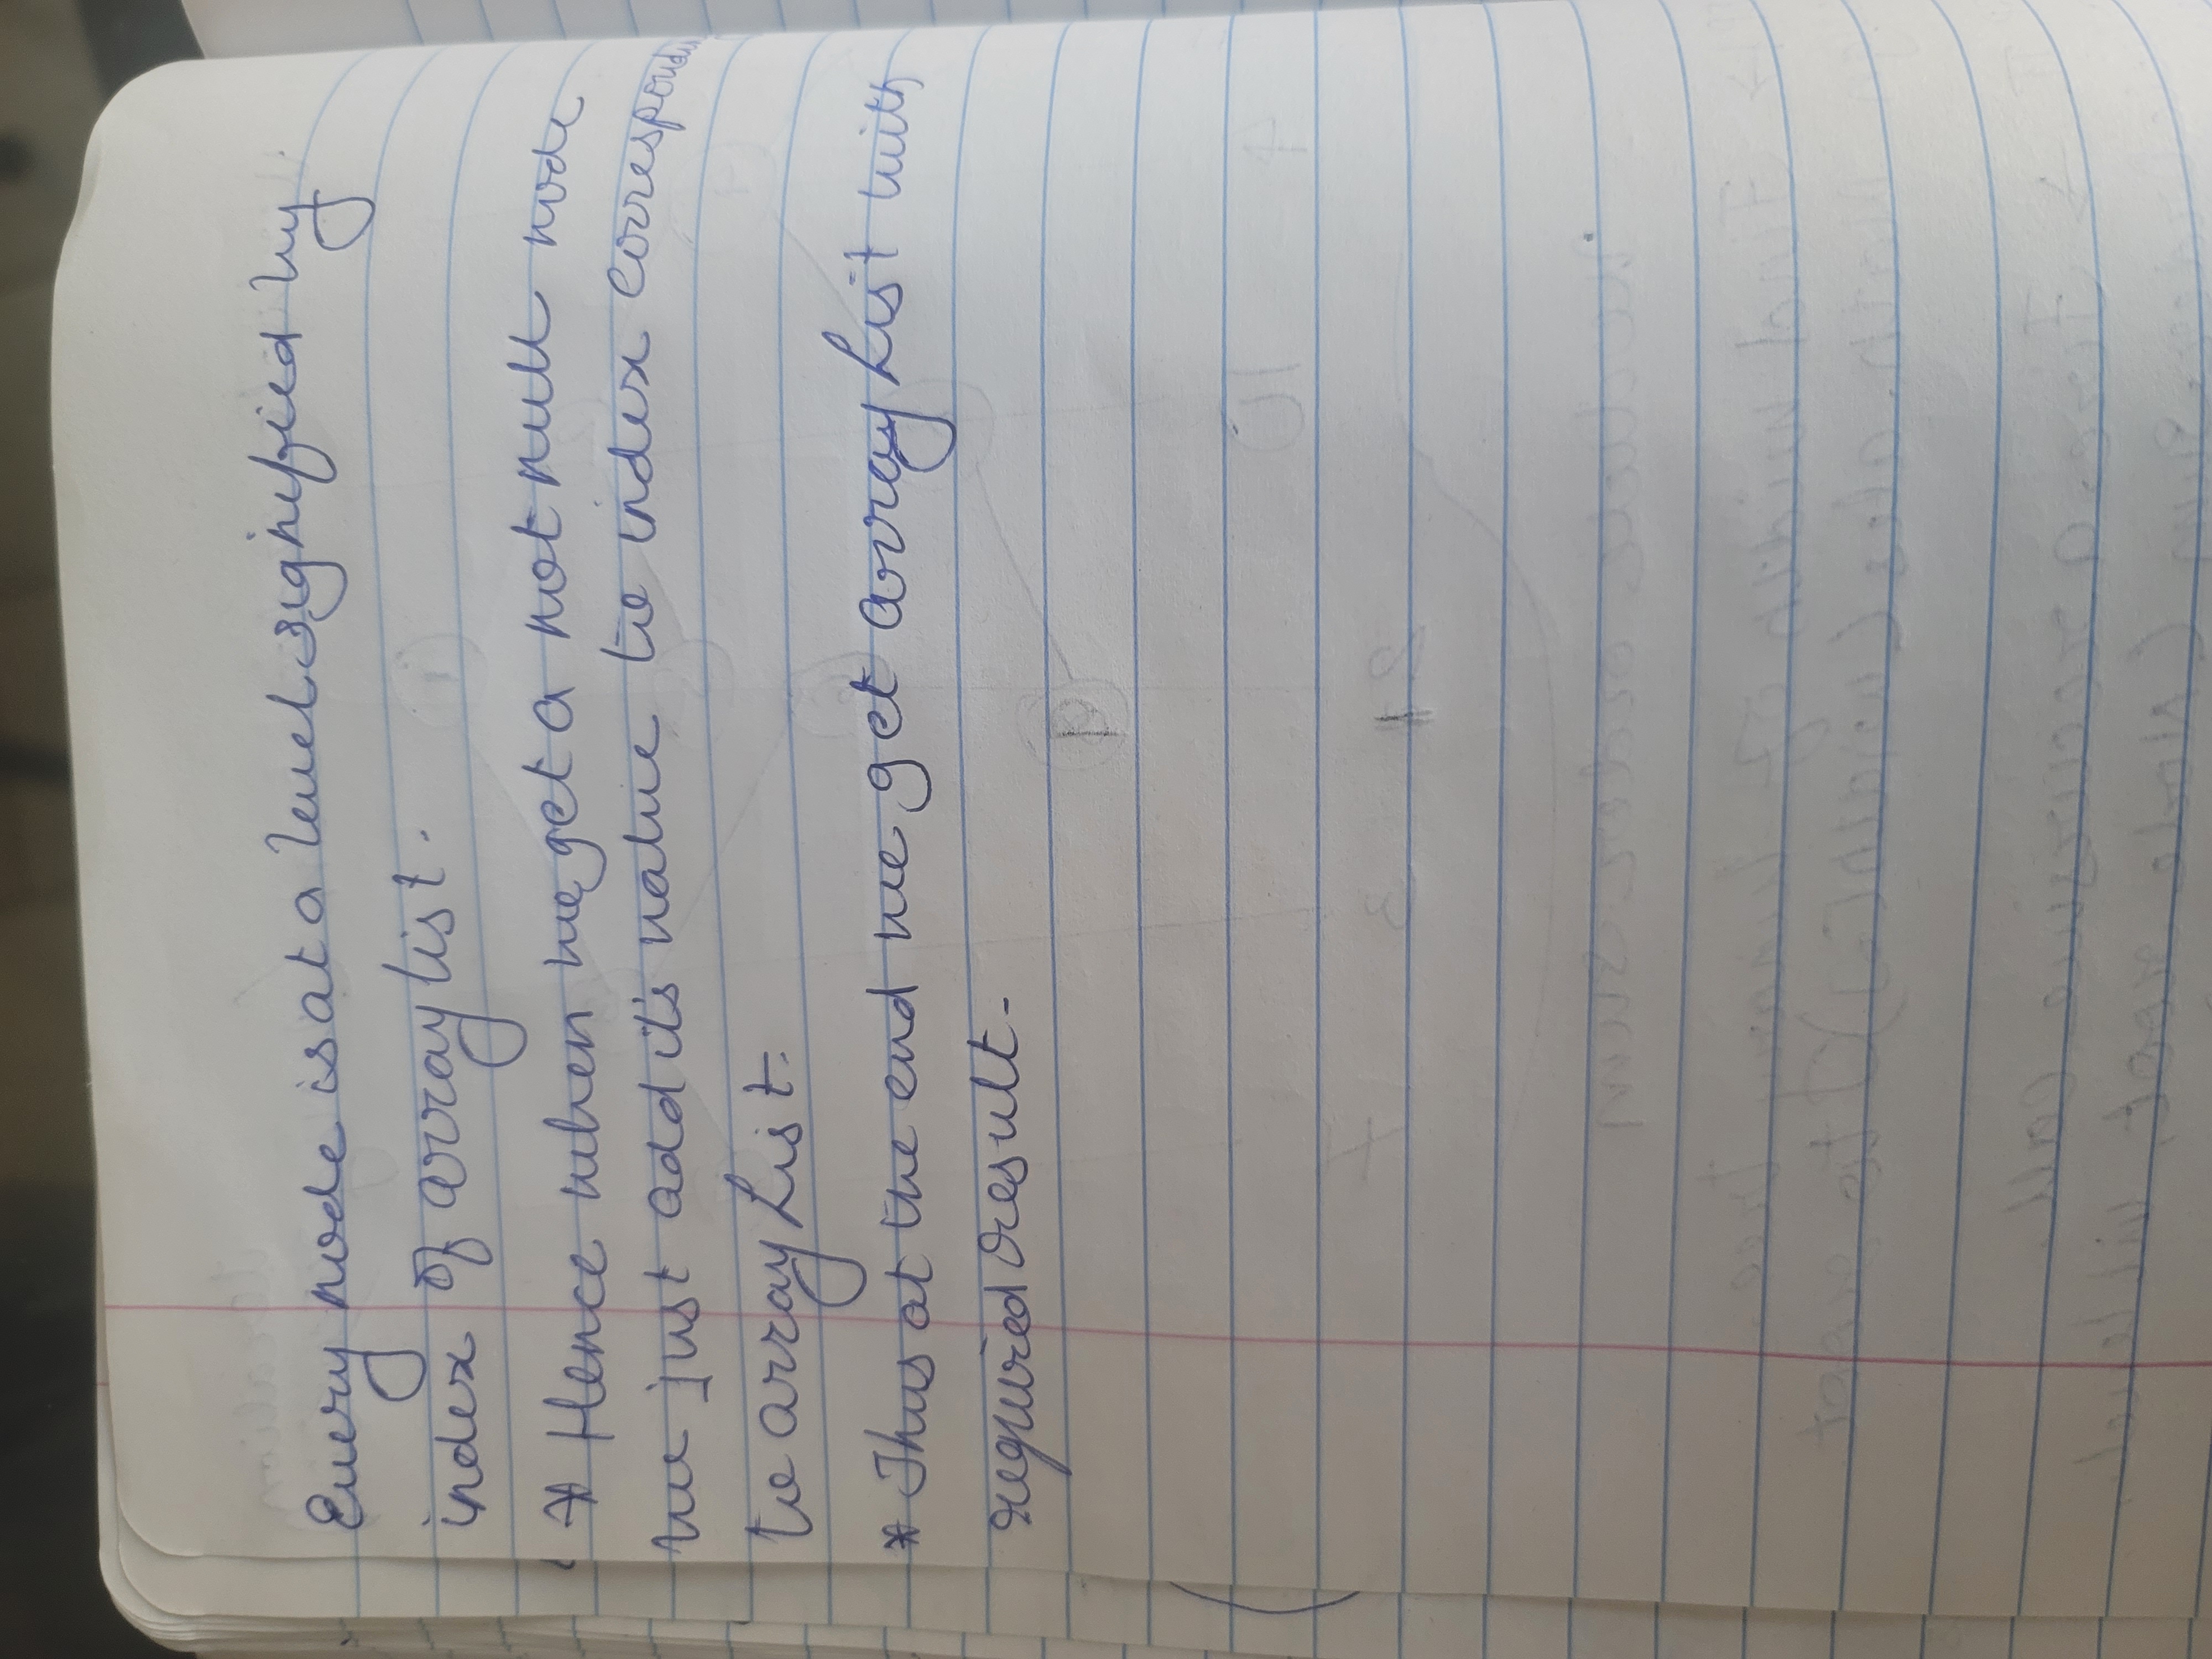 Every node is at a level signified by
index of array list.
* Hence when we get a not null node
we just add it's value to index correspondin
to array List.
* Thus at the end we get array List with
required result.